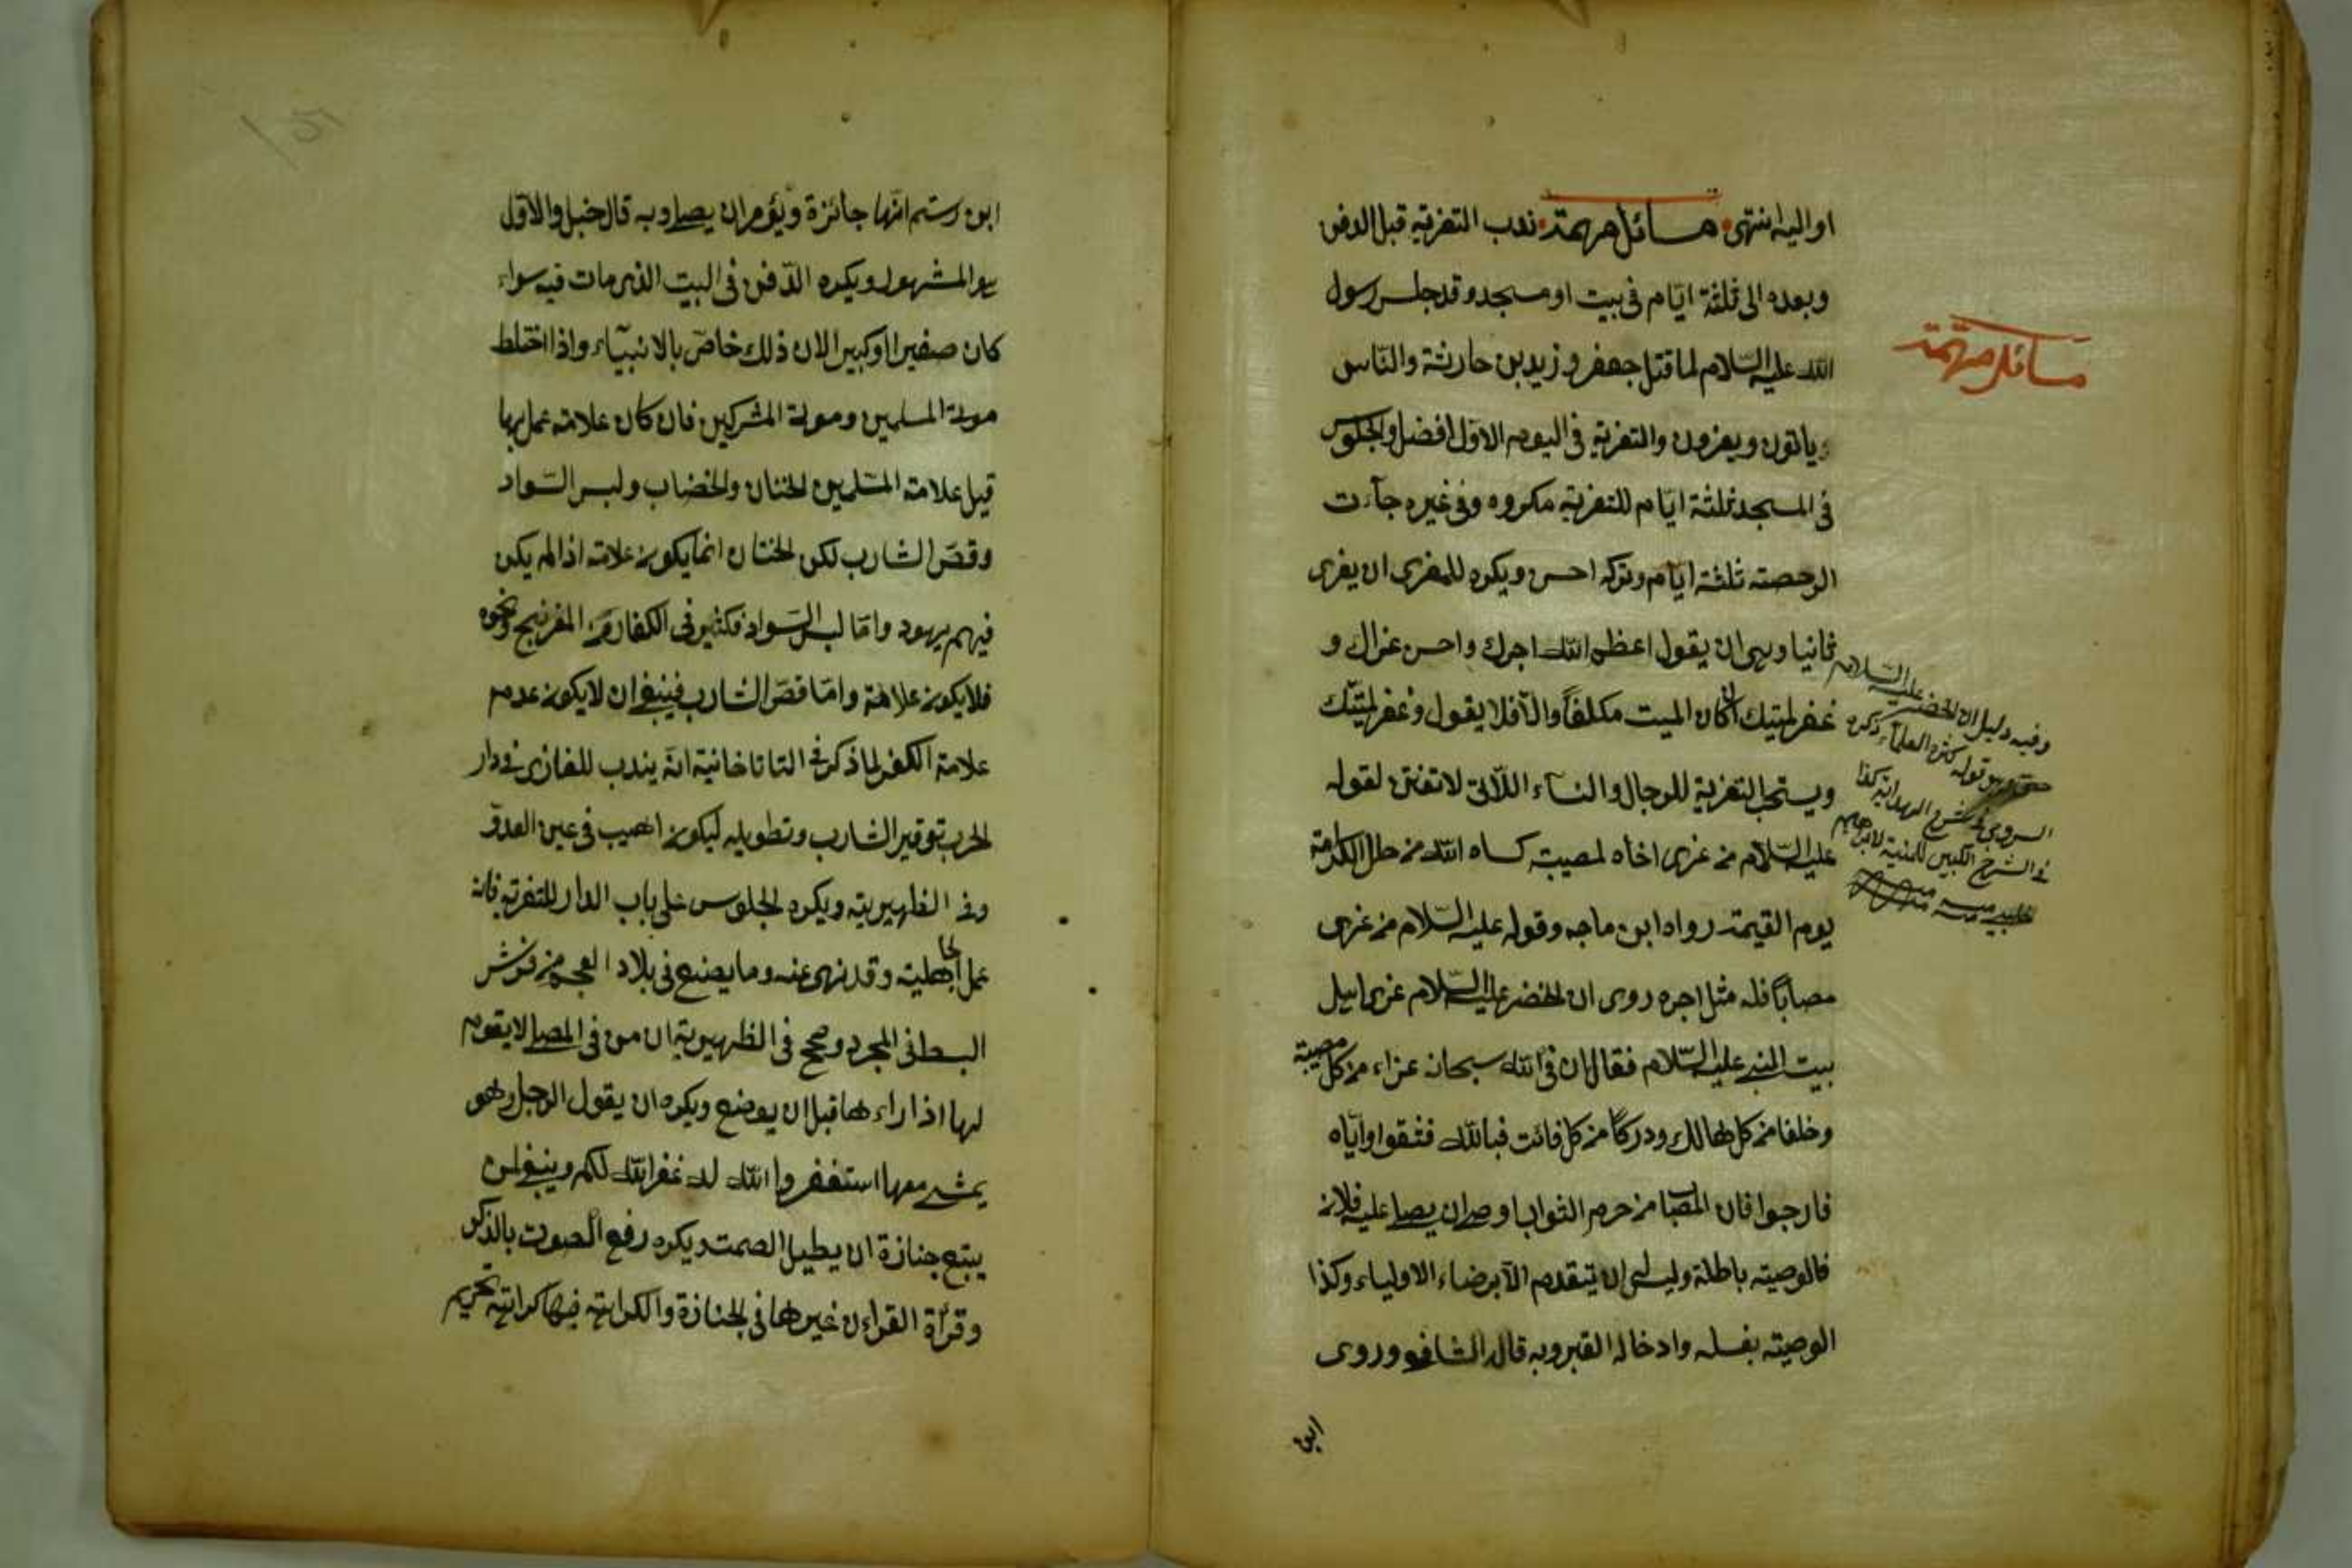 او اليه انتهى مسائل مهمة ندب التعزية قبل الدفن
وبعده الى ثلثة ايّام فى بيت او مسجد وقد جلس رسول
الله عليه السّلام لما قتل جعفر و زيد بن حارثة والنّاس
وياتون ويعزون والتعزية فى اليوم الاوّل افضل والجلوس
فى المسجد ثلثة ايّام للتعزية مكروه وفى غيره جآءت
الرخصة ثلثة ايّام وتركه احسن ويكره للمعزى ان يعزى
ثانيا وهى ان يقول اعظم الله اجرك واحسن عزاك و
غفر لميتك ان كان الميت مكلفاً والّا فلا يقول وغفر لميّتك
ويستحب التعزية للرجال والنساء اللّاتى لا تفتن لقوله
عليه السّلام من عزى اخاه لمصيبة كساه الله من حلل الكرامة
يوم القيمة رواه ابن ماجه وقوله عليه السّلام من عزى
مصاباً فله مثل اجره روى ان الخضر عليه السّلام عزى اهل
بيت النبى عليه السّلام فقال ان فى الله سبحانه عزاء من كل مصيبة
وخلفا من كل هالك ودركاً من كل فائت فبالله فثقوا وايّاه
فارجوا فان المصاب من حرم الثواب اوصى ان يصلى عليه فلان
فالوصية باطلة وليس له ان يتقدم الّا برضاء الاولياء وكذا
الوصية بغسله وادخاله القبر وبه قال الشافعى وروى
ابن
مسائل مهمة
وفيه دليل ان الخضر عليه السّلام
حى وهو قول كثير العلمآء ذكره
السروجى فى شرح الهداية كذا
فى الشرح الكبير للمنية لابراهيم
حلبى منه
ابن رستم انّها جائزة ويؤمر ان يصلى وبه قال حنبل والاوّل
هو المشهور ويكره الدّفن فى البيت الذى مات فيه سواء
كان صغيرا او كبيرا لان ذلك خاصّ بالانبيآء واذا اختلط
موتى المسلمين وموتى المشركين فان كان علامة عمل بها
قيل علامة المسلمين الختان والخضاب ولبس السّواد
وقصّ الشارب لكن الختان انما يكون علامة اذا لم يكن
فيهم يهود وامّا لبس السّواد فكثير فى الكفار من الفرنج ونحوه
فلا يكون علامة وامّا قصّ الشارب فينبغى ان لا يكون عدمه
علامة الكفر لما ذكر فى التاتاخانية انّه يندب للغازى فى دار
الحرب توفير الشارب وتطويله ليكون اهيب فى عين العدوّ
وفى الظهيرية ويكره الجلوس على باب الدار للتعزية فانه
عمل الجاهلية وقد نهى عنه وما يصنع فى بلاد العجم من فرش
البسط فى المجرد وصحح فى الظهيرية ان من فى المصلى لا يقوم
لها اذا راءها قبل ان يوضع ويكره ان يقول الرجل وهو
يمشى معها استغفروا الله له غفر الله لكم وينبغى لمن
يتبع جنازة ان يطيل الصمت ويكره رفع الصوت بالذكر
وقرأة القراءن غيرها فى الجنازة والكراهة فيها كراهة تحريم